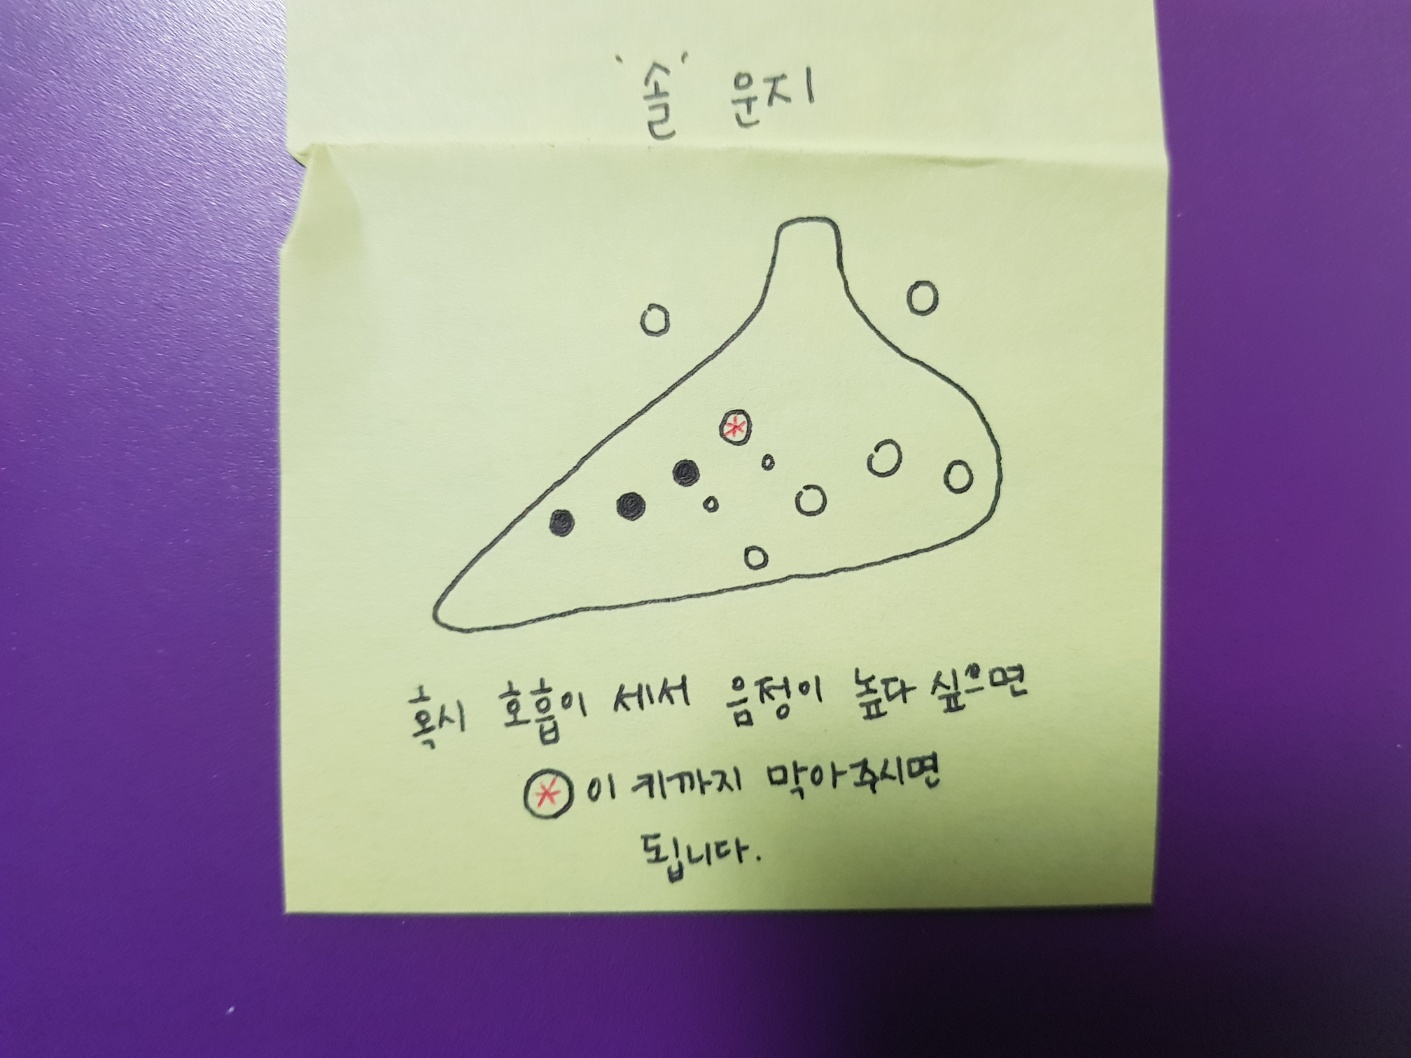 '솔' 운지
혹시 호흡이 세서 음정이 높다 싶으면
* 이 키까지 막아주시면
됩니다.